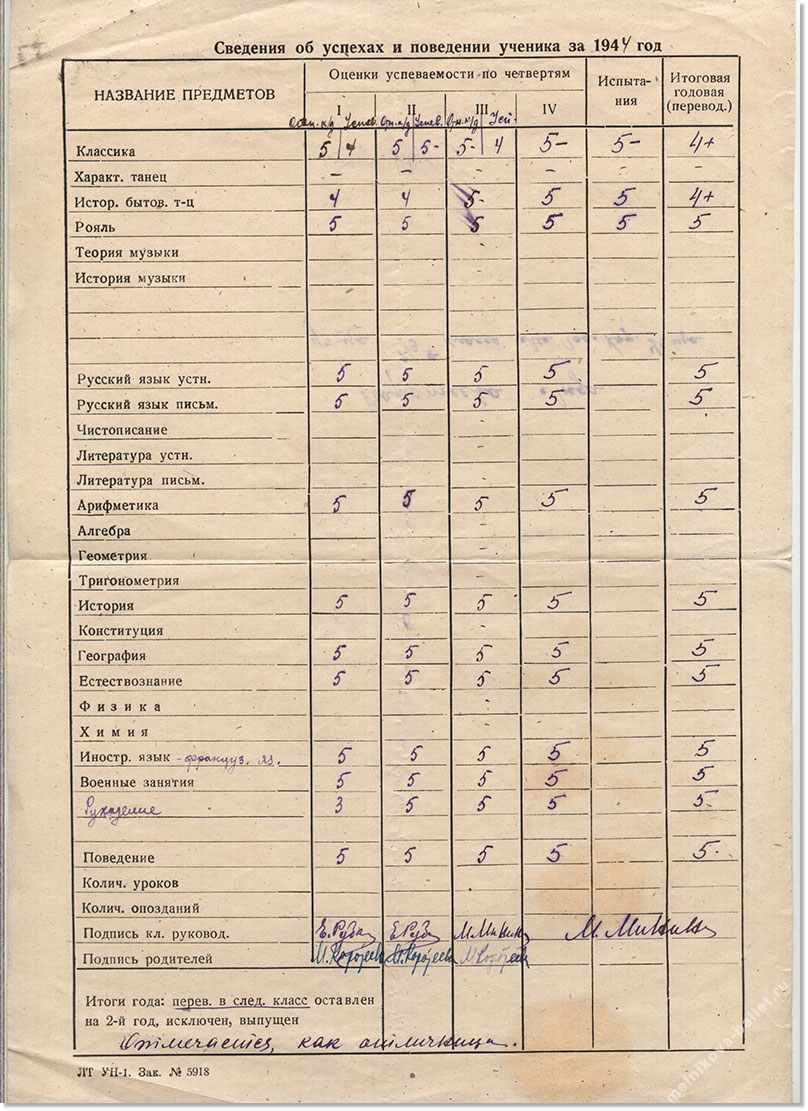 Сведения об успехах и поведении ученика за 1944 год
НАЗВАНИЕ ПРЕДМЕТОВ
Оценки успеваемости по четвертям
Испыта-
ния
Итоговая
годовая
(перевод.)
I II III IV
Классика 5/4 5 5- 5- 4 5- 5- 4+
Характ. танец - - - - - -
Истор. бытов. т-ц 4 4 5- 5 5 4+
Рояль 5 5 5 5 5 5
Теория музыки
История музыки
Русский язык устн. 5 5 5 5 5
Русский язык письм. 5 5 5 5 5
Чистописание
Литература устн.
Литература письм.
Арифметика 5 5 5 5 5
Алгебра
Геометрия
Тригонометрия
История 5 5 5 5 5
Конституция
География 5 5 5 5 5
Естествознание 5 5 5 5 5
Физика
Химия
Иностр. язык - француз. яз. 5 5 5 5 5
Военные занятия 5 5 5 5 5
Рукоделие 3 5 5 5 5
Поведение 5 5 5 5 5
Колич. уроков
Колич. опозданий
Подпись кл. руковод.
Подпись родителей
Итоги года: перев. в след. класс оставлен
на 2-й год, исключен, выпущен
Отмечается, как отличница.
ЛТ УП-1. Зак. № 5918
melnikova-ballet.ru